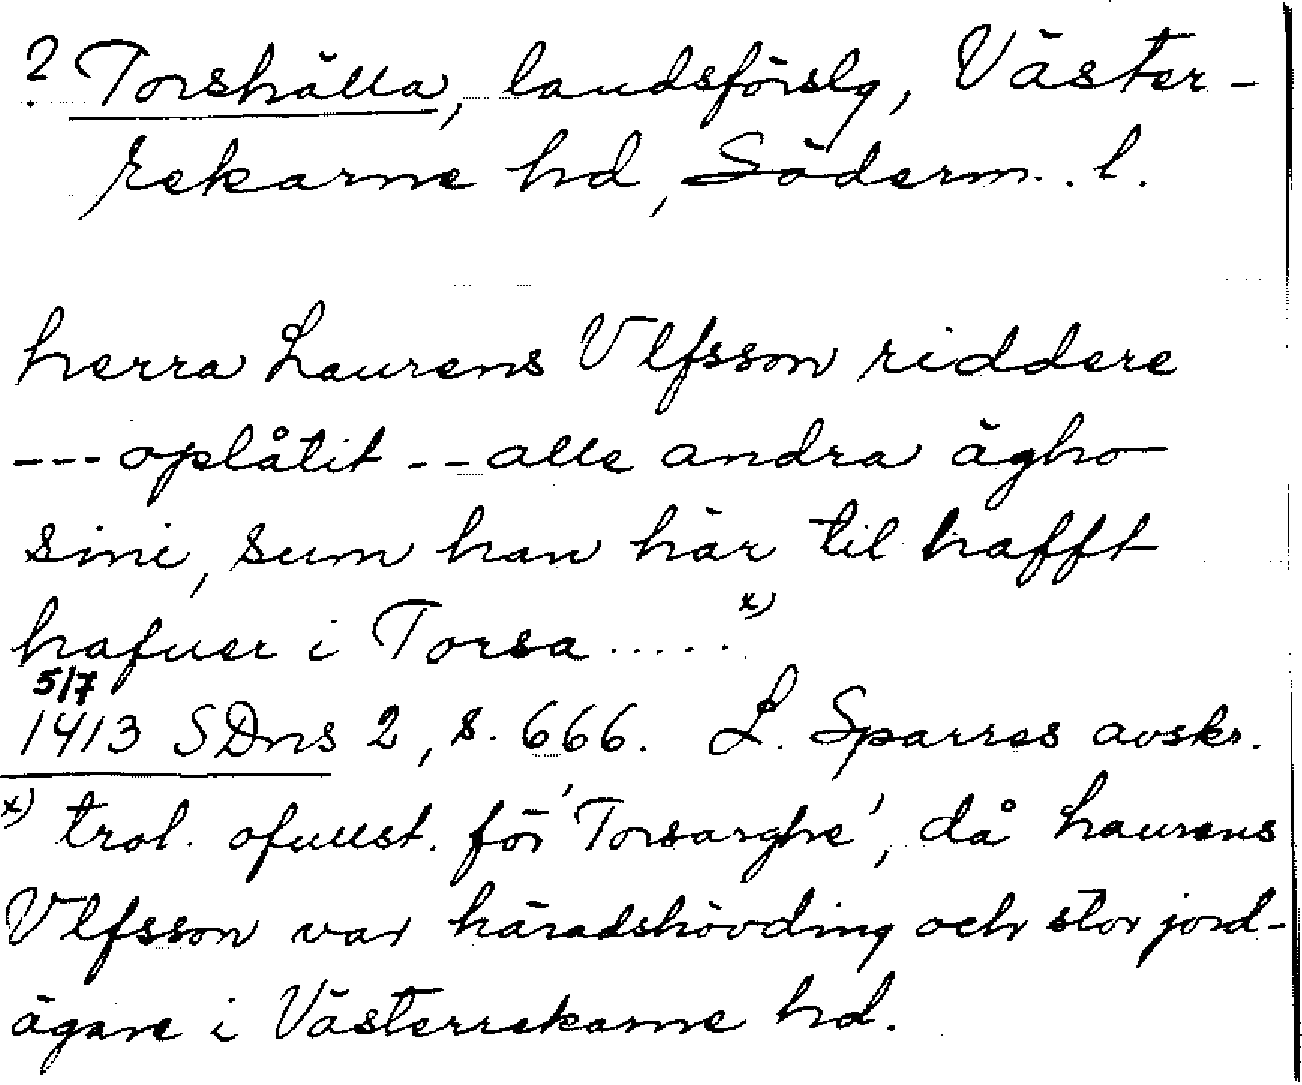 ? Torshälla, landsförslg, Väster-
rekarne hd, Söderm. l.
herra Laurens Vlfsson riddere
--- oplåtit -- alle andra ägho
sini, sum han här til hafft
hafuer i Torsa ..... x)
5/7
1413 SDns 2, s. 666. L. Sparres avskr.
x) trol. ofullst. för 'Torsarghe', då Laurens
Vlfsson var häradshövding och stor jord-
ägare i Västerrekarne hd.